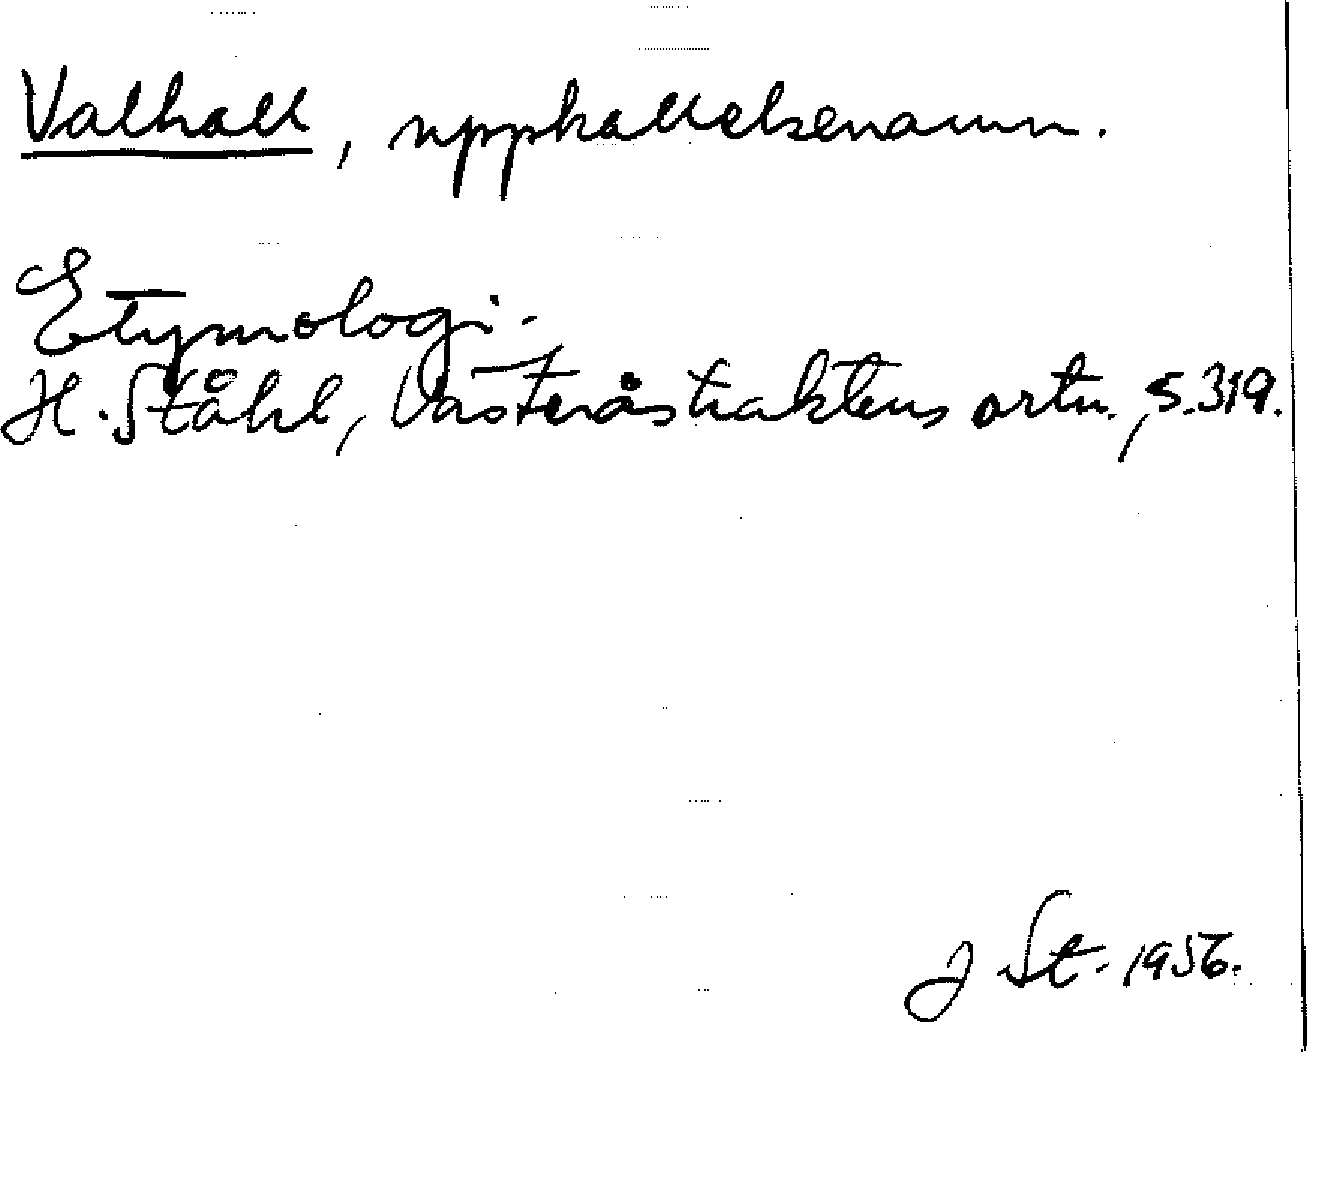 Valhall, uppkallelsenamn.
Etymologi.
H. Ståhl, Västeråstraktens ortn., s. 319.
J St. 1956.